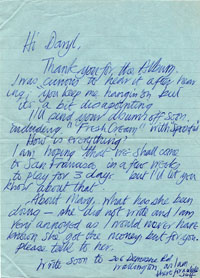 Hi Daryl,
Thank you for the Album.
I was curious to hear it after hear
ing, you keep me hanging on but
it's a bit disapointing
I'll send your albums off soon.
including "Fresh Cream" with
How is everything?
I am hoping that we shall come
to San Francisco in a few weeks
to play for 3 days. but I'll let you
know about that.
About Mary, what has she been
doing — she did not write and I am
very annoyed as I would never have
known she got the money but for you,
please talk to her.
Write soon to